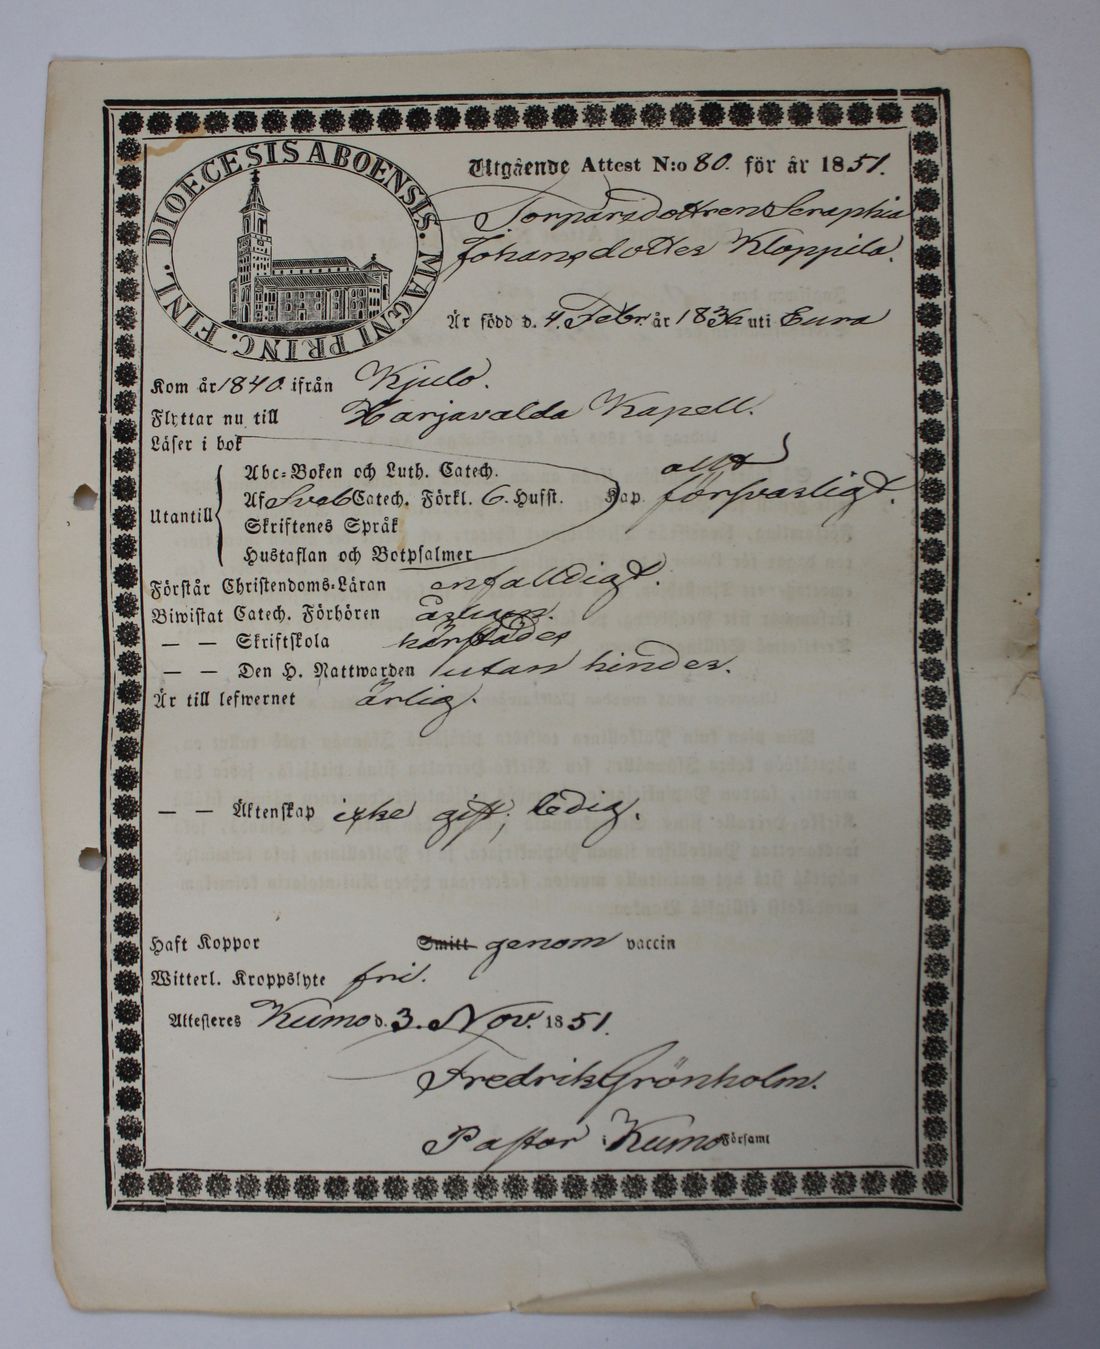 DIOECESIS ABOENSIS. MAGNI PRINC. FINL.
Utgående Attest N:o 80. för år 1851.
Torparsdottren Seraphia
Johansdotter Kloppila.
Är född d. 4. Febr. år 1836 uti Eura
Kom år 1840. ifrån Kjulo.
Flyttar nu till Harjavalda Kapell.
Läser i bok
Abc-Boken och Luth. Catech. allt
Utantill Af Sveb Catech. Förkl. 6. Husst. Kap. försvarligt.
Skriftenes Språk
Hustaflan och Botpsalmer
Förstår Christendoms-Läran enfalldigt.
Biwistat Catech. Förhören
— — Skriftskola härstädes
— — Den H. Nattwarden utan hinder.
Är till lefwernet ärlig.
— — Äktenskap icke gift; ledig.
Haft Koppor Smitt genom vaccin
Witterl. Kroppslyte fri.
Attesteres Kumo d. 3. Nov. 1851.
Fredrik Grönholm.
Pastor i Kumo Församl